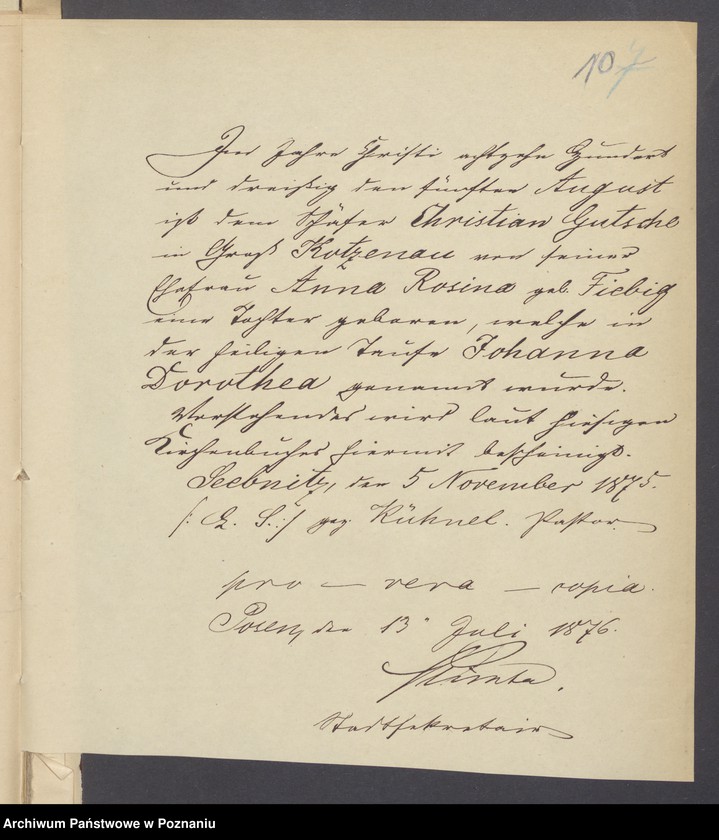 10 7
Im Jahre Christi achtzehn Hundert
und dreißig den fünften August
ist dem Schäfer Christian Gutsche
in Groß Kotzenau von seiner
Ehefrau Anna Rosina geb. Fiebig
eine Tochter geboren, welche in
der heiligen Taufe Johanna
Dorothea genannt wurde.
Vorstehendes wird laut hiesigen
Kirchenbuches hiermit bescheinigt.
Seebnitz, den 5 November 1875.
/: L. S. :/ gez Kühnel. Pastor.
pro – vera – copia.
Posen, den 13" Juli 1876.
Stadtsekretair
Archiwum Państwowe w Poznaniu